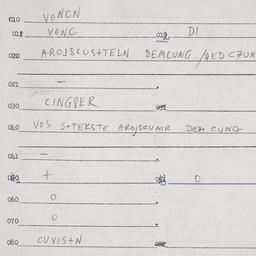 010 VONCN
011 VONC 012 DI
020 AROJSCUS+TELN DEMCUNG /
021 —
030 CINGPER 031
040 VOS S+TEKSTE AROJSCUNIR DEM CUNG
041 —
+ 0
060 0
070 0
080 CUVIS+N